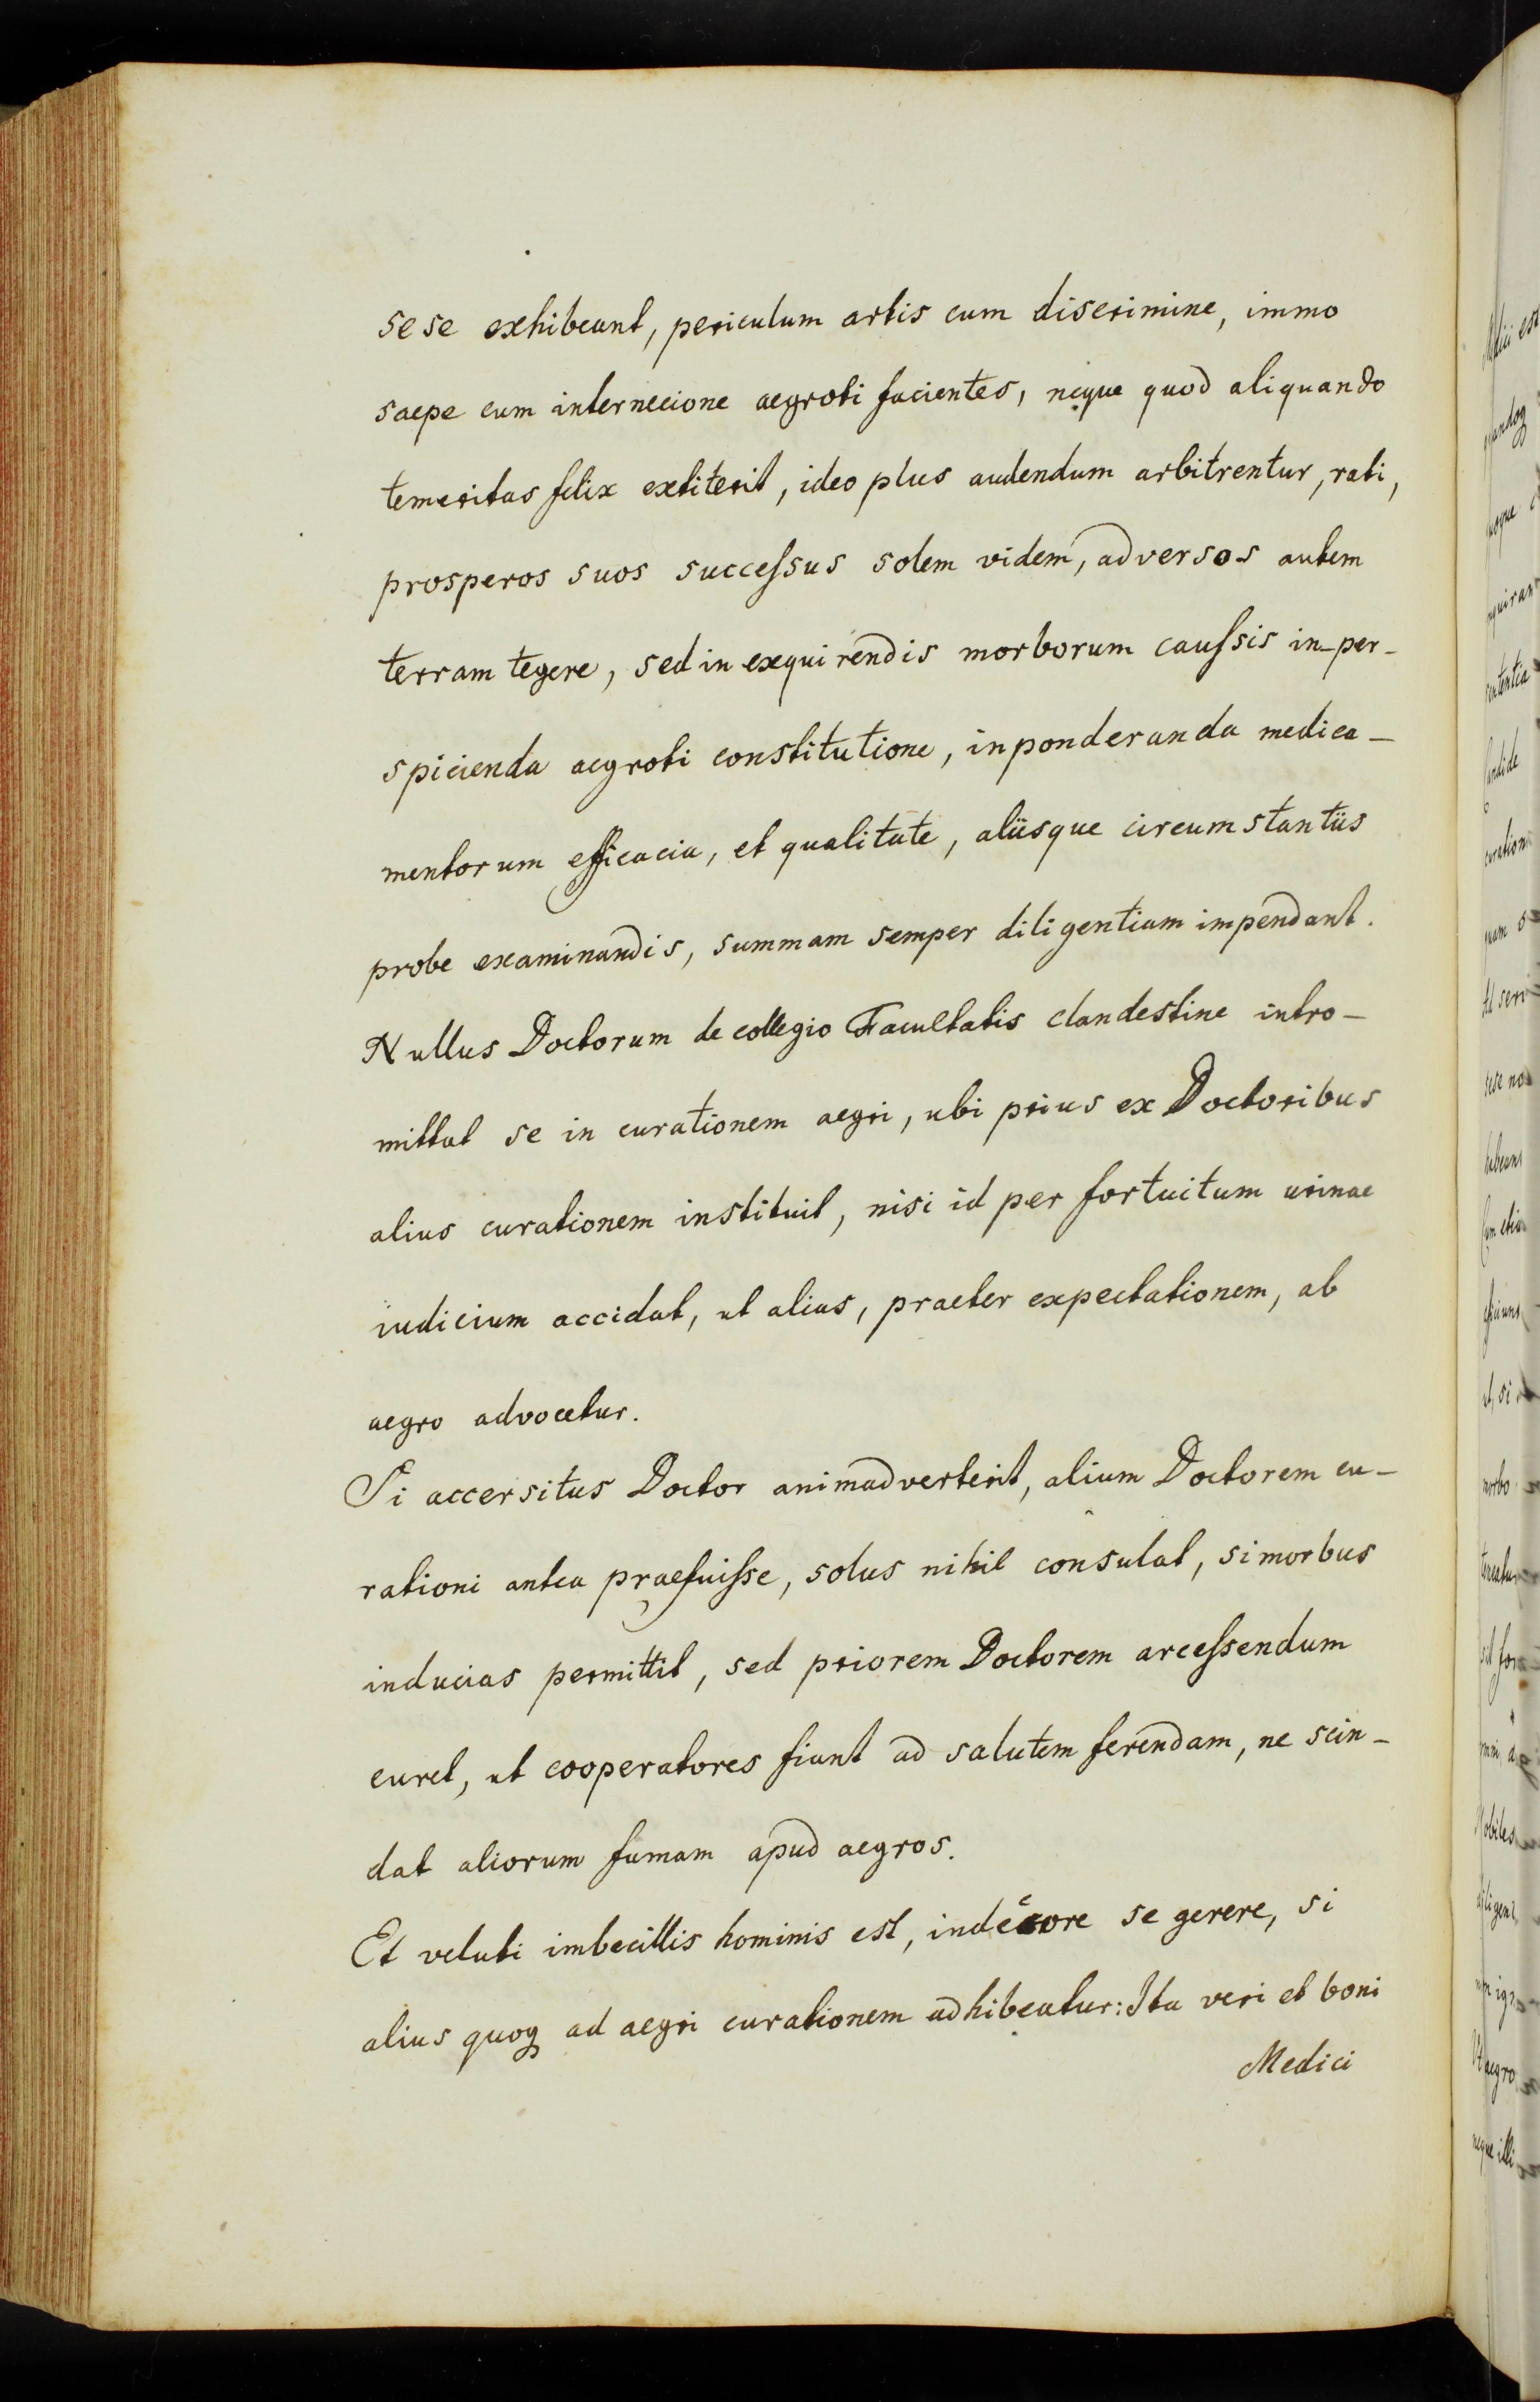 sese exhibeant, periculum artis cum discrimine, immo
saepe cum internecione aegroti facientes, neque quod aliquando
temeritas felix extiterit, ideo plus audendum arbitrentur, rati,
prosperos suos successus solem videre, adversos autem
terram tegere, sed in exquirendis morborum caussis in per-
spicienda aegroti constitutione, in ponderanda medica-
mentorum efficacia, et qualitate, aliisque circumstantiis
probe examinandis, summam semper diligentiam impendant.
Nullus Doctorum de collegio Facultatis clandestine intro-
mittat se in curationem aegri, ubi prius ex Doctoribus
alius curationem instituit, nisi id per fortuitum urinae
iudicium accidat, ut alius, praeter expectationem, ab
aegro advocetur.
Si accersitus Doctor animadverterit, alium Doctorem cu-
rationi antea praefuisse, solus nihil consulat, si morbus
inducias permittit, sed priorem Doctorem arcessendum
curet, ut cooperatores fiant ad salutem ferendam, ne scin-
dat aliorum famam apud aegros.
Et veluti imbecillis hominis est, indecore se gerere, si
alius quoq ad aegri curationem adhibeatur: Ita veri et boni
Medici